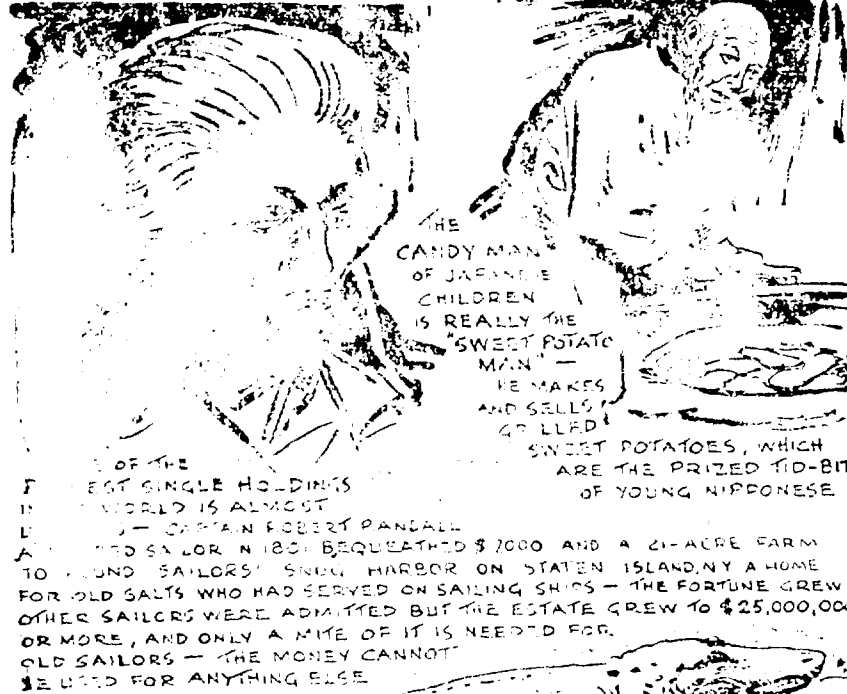 THE
CANDY MAN
OF JAPANESE
CHILDREN
IS REALLY THE
"SWEET POTATO
MAN" —
HE MAKES
AND SELLS
GRILLED
SWEET POTATOES, WHICH
ARE THE PRIZED TID-BIT
OF YOUNG NIPPONESE
OF THE
SINGLE HOLDINGS
WORLD IS ALMOST
— CAPTAIN ROBERT RANDALL
SAILOR IN 1801 BEQUEATHED $7000 AND A 21-ACRE FARM
TO FOUND SAILORS' SNUG HARBOR ON STATEN ISLAND, NY A HOME
FOR OLD SALTS WHO HAD SERVED ON SAILING SHIPS — THE FORTUNE GREW
OTHER SAILORS WERE ADMITTED BUT THE ESTATE GREW TO $25,000,000
OR MORE, AND ONLY A MITE OF IT IS NEEDED FOR
OLD SAILORS — THE MONEY CANNOT
BE USED FOR ANYTHING ELSE